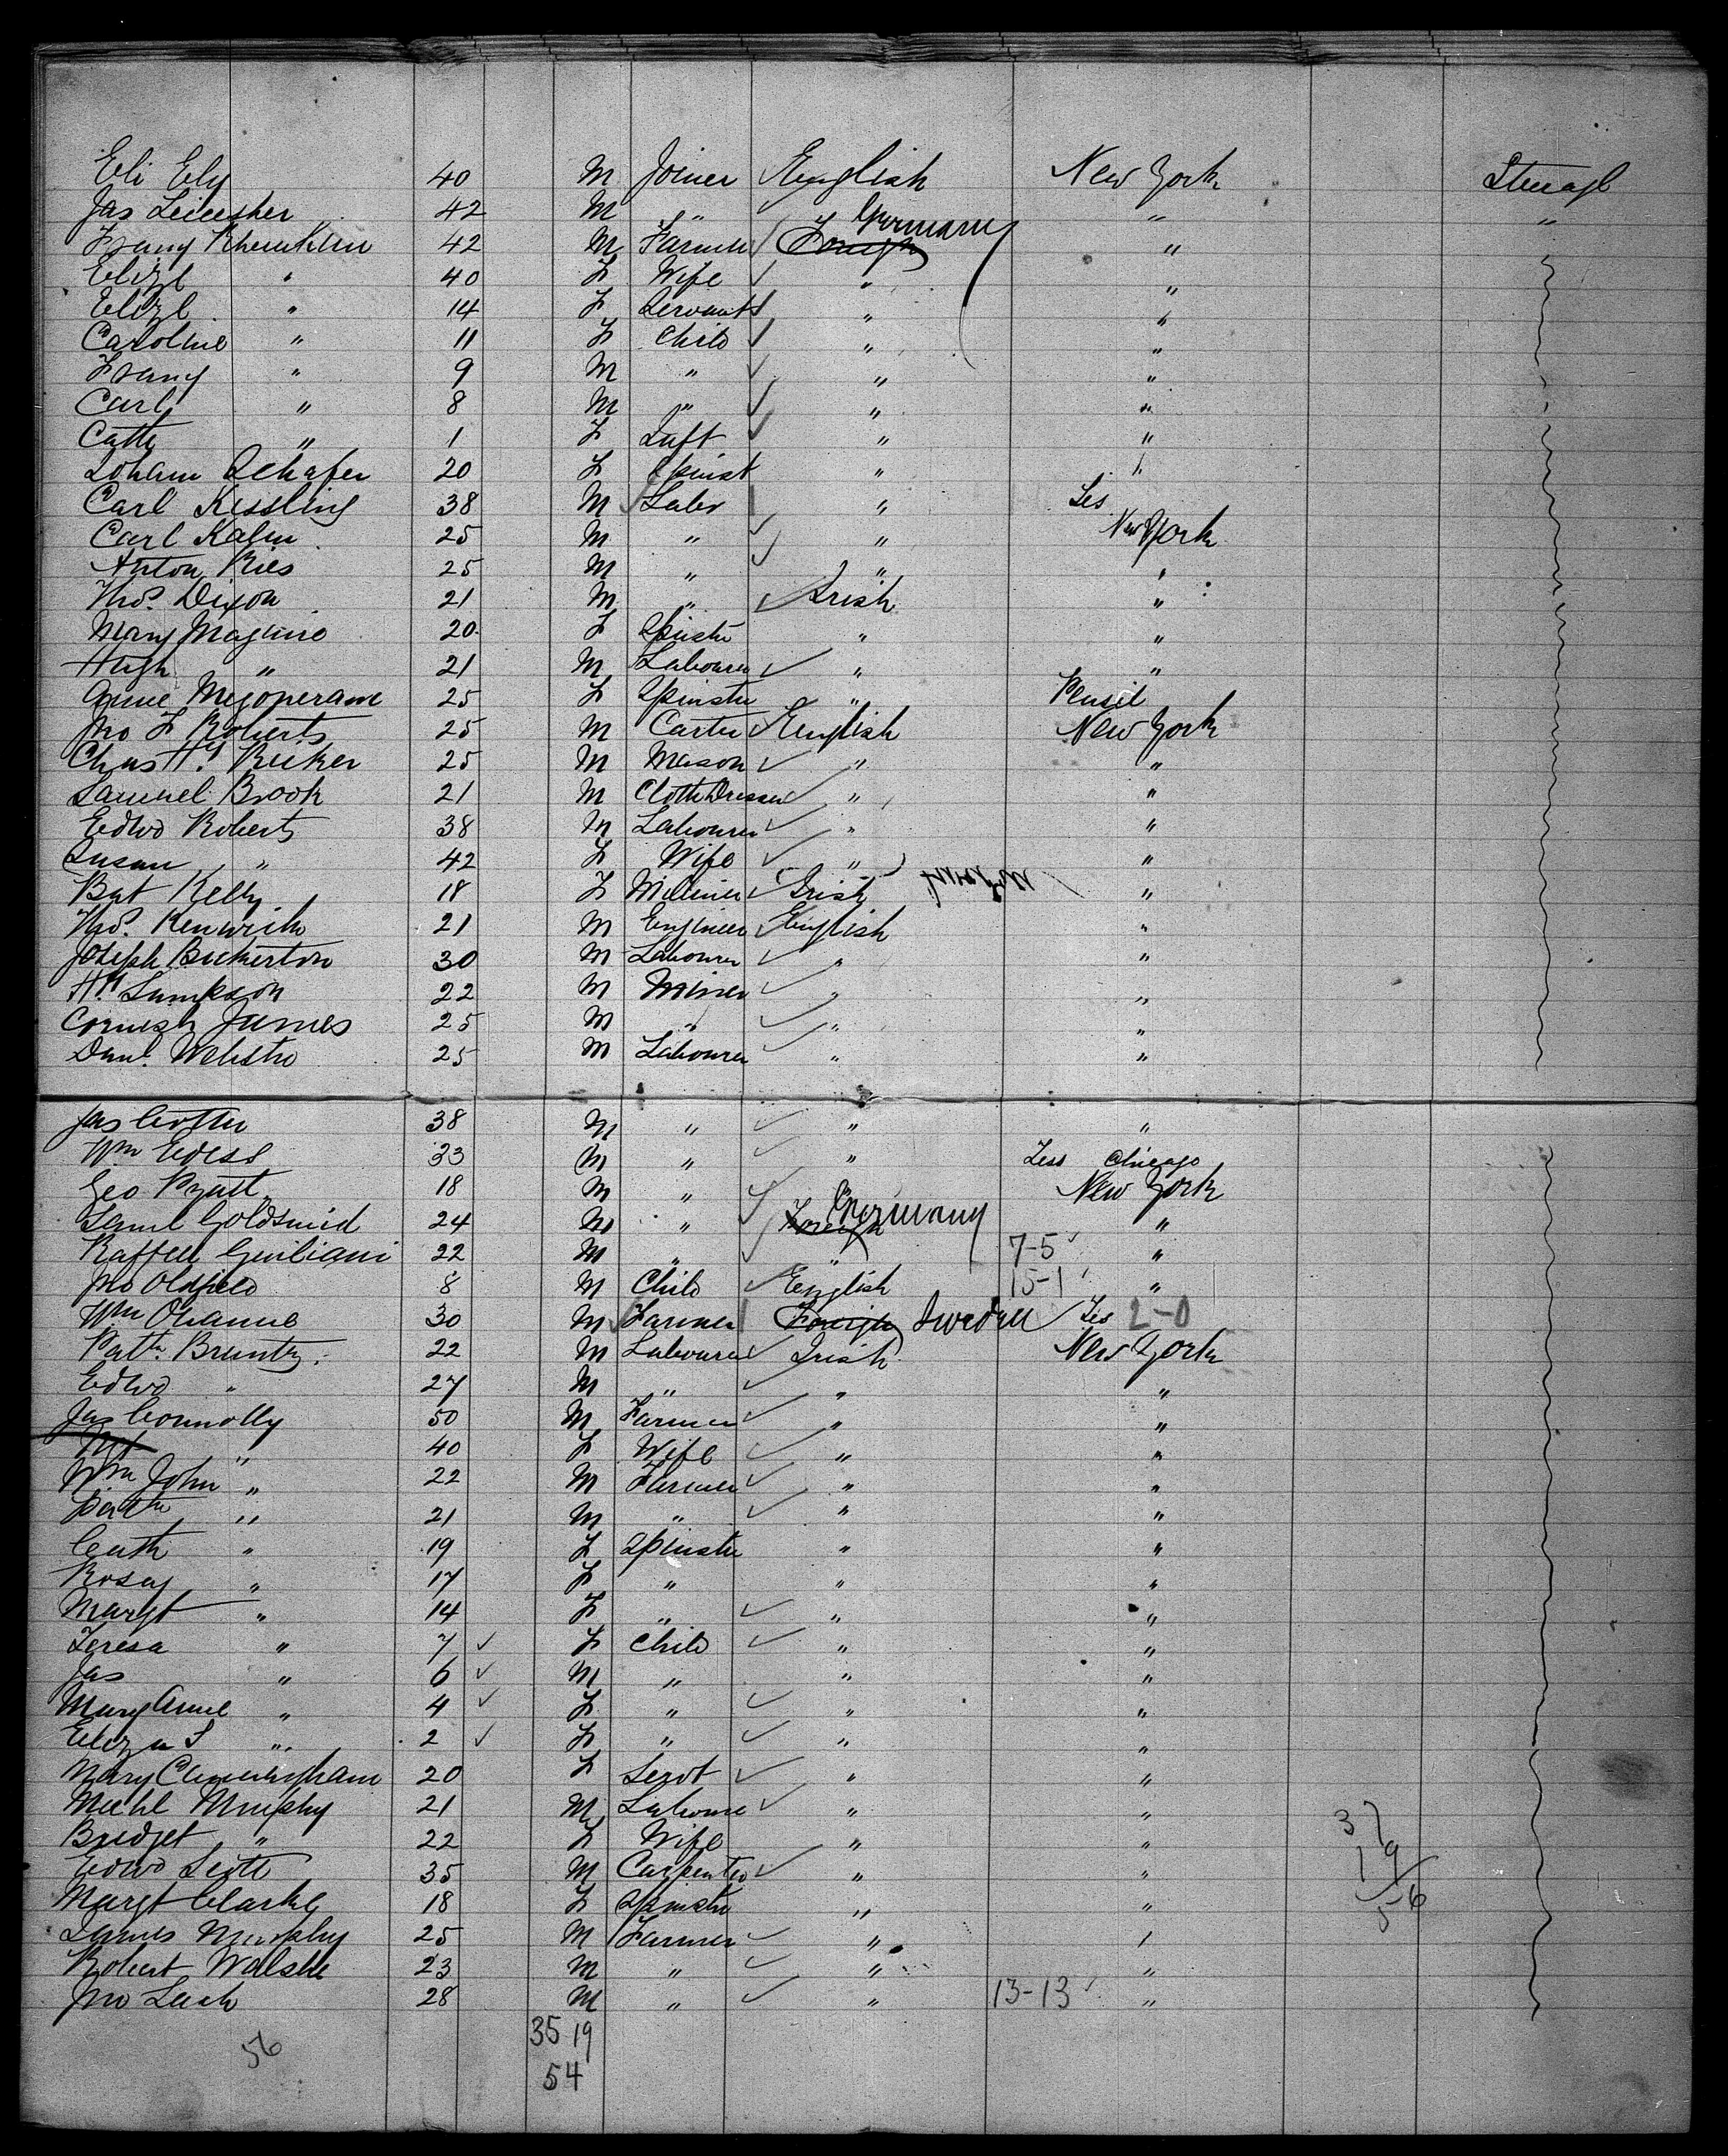 Eli Ely 40 M Joiner English New York Steerage
Jas Leicester 42 M " " "
Germany
Franz 42 M Farmer Foreign "
Elize " 40 F Wife " "
Elize " 14 F Servant " "
Caroline " 11 F Child " "
Franz " 9 M " " "
Carl " 8 M " " "
Cath " 1 F Inft " "
Schafer 20 F Spinst " "
Carl Kissling 38 M Labr " Les
Carl Kalm 25 M " " New York
Anton Ries 25 M " " "
Thos. Dixon 21 M " Irish "
Mary Maguire 20 F Spinstr " "
Hugh " 21 M Labourer " "
Anne 25 F Spinster "
Jno F Roberts 25 M Carter English New York
Chas Hy Ricker 25 M Mason " "
Samuel Brook 21 M Cloth Dresser " "
Edwd Roberts 38 M Labourer " "
Susan " 42 F Wife " "
Bat Kelly 18 F Milliner Irish "
Thos. Renwick 21 M Engineer English "
Joseph Bickerton 30 M Labourer " "
Hy Simpson 22 M Miner " "
Cornish James 25 M " " "
Danl. Webster 25 M Labourer " "
Jas Cotter 38 M " " "
Wm Edess 33 M " " Less Chicago
Geo Pyatt 18 M " New York
Germany
Saml Goldsmid 24 M " Foreign "
Raffell Guiliani 22 M " " 7-5 "
Jno Oldfield 8 M Child English 15-1 "
Wm 30 M Farmer Foreign Sweden Les 2-0
Patk. Brunty 22 M Labourer Irish New York
Edwd " 27 M " " "
Jas Connolly 50 M Farmer " "
Mgt " 40 F Wife " "
Wm John " 22 M Farmer " "
Patk " 21 M " " "
Cath " 19 F Spinster " "
Rosey " 17 F " " "
Margt " 14 F " " "
Teresa " 7 F Child " "
Jas " 6 M " " "
Mary Anne " 4 F " " "
Eliza S " 2 F " " "
Mary Cunningham 20 F Servt " "
Michl Murphy 21 M Labourer " "
Bridget " 22 F Wife " "
Edwd Scott 35 M Carpenter " "
Margt Clarke 18 F Spinster " "
James Murphy 25 M Farmer " "
Robert Walshe 23 M " " "
Jno Leach 28 M " " 13-13 "
37
19
56
35 19
56
54